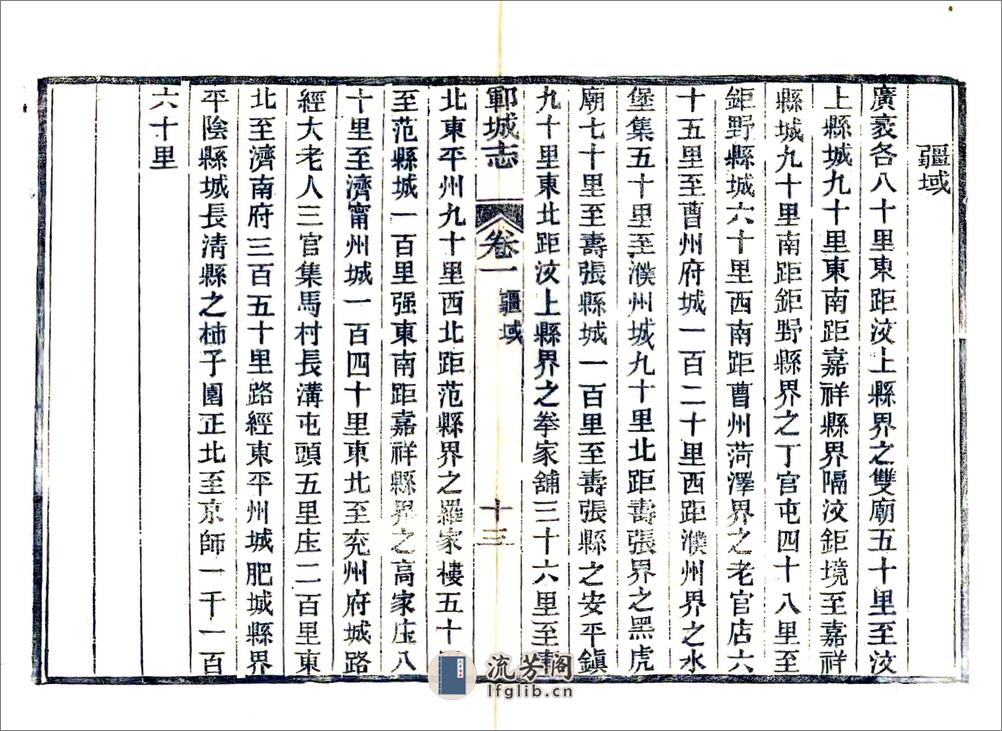 疆域
廣袤各八十里東距汶上縣界之雙廟五十里至汶
上縣城九十里東南距嘉祥縣界隔汶鉅境至嘉祥
縣城九十里南距鉅野縣界之丁官屯四十八里至
鉅野縣城六十里西南距曹州菏澤界之老官店六
十五里至曹州府城一百二十里西距濮州界之水
堡集五十里至濮州城九十里北距壽張界之黑虎
廟七十里至壽張縣城一百里至壽張縣之安平鎮
九十里東北距汶上縣界之拳家舖三十六里至
鄆城志 卷一 疆域 十三
北東平州九十里西北距范縣界之羅家樓五十
至范縣城一百里强東南距嘉祥縣界之高家庄八
十里至濟甯州城一百四十里東北至兖州府城路
經大老人三官集馬村長溝屯頭五里庄二百里東
北至濟南府三百五十里路經東平州城肥城縣界
平陰縣城長清縣之柿子園正北至京師一千一百
六十里
流芳閣
lfglib.cn